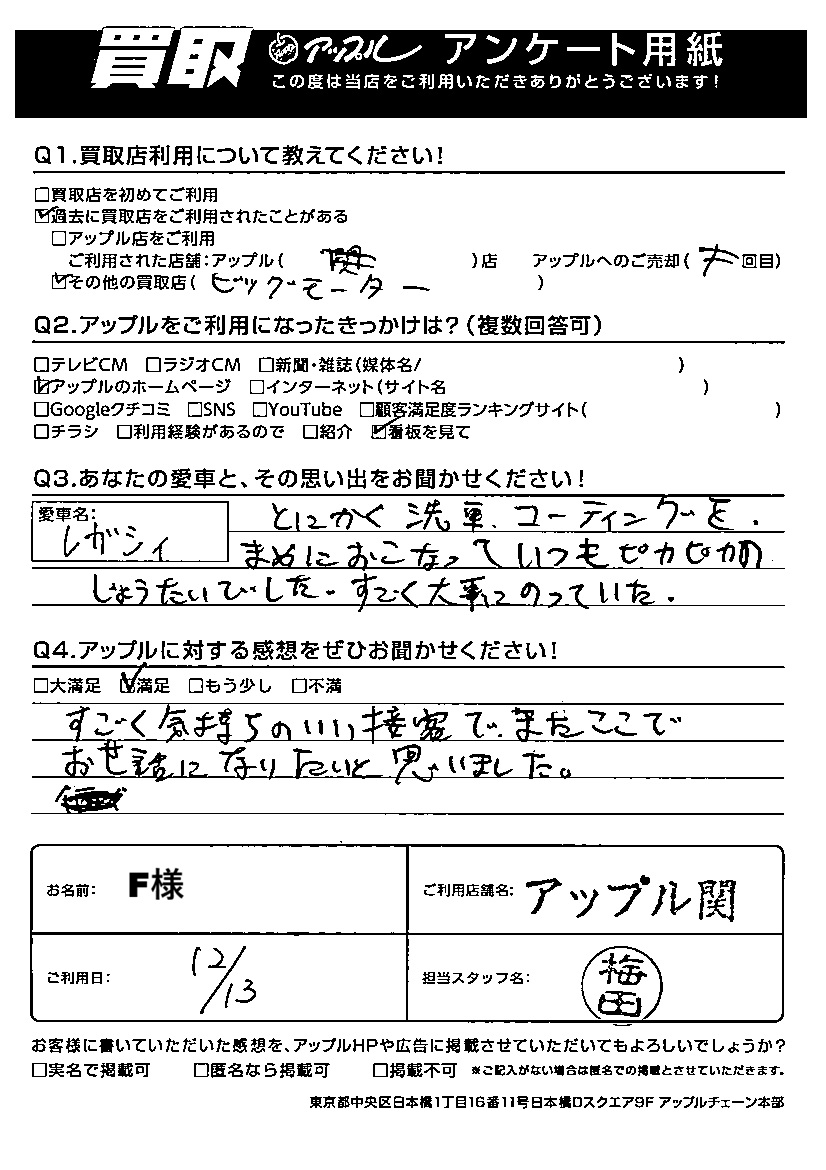 買取 アップル アンケート用紙
この度は当店をご利用いただきありがとうございます!
Q1.買取店利用について教えてください!
□買取店を初めてご利用
☑過去に買取店をご利用されたことがある
□アップル店をご利用
ご利用された店舗:アップル( )店 アップルへのご売却( 回目)
☑その他の買取店( ビッグモーター )
Q2.アップルをご利用になったきっかけは?(複数回答可)
□テレビCM □ラジオCM □新聞・雑誌(媒体名/ )
☑アップルのホームページ □インターネット(サイト名 )
□Googleクチコミ □SNS □YouTube □顧客満足度ランキングサイト( )
□チラシ □利用経験があるので □紹介 ☑看板を見て
Q3.あなたの愛車と、その思い出をお聞かせください!
愛車名:
レガシィ
とにかく洗車、コーティングを、
まめにおこなっていつもピカピカの
じょうたいでした。すごく大事にのっていた。
Q4.アップルに対する感想をぜひお聞かせください!
□大満足 ☑満足 □もう少し □不満
すごく気持ちのいい接客で、またここで
お世話になりたいと思いました。
お名前: F様 ご利用店舗名: アップル関
ご利用日: 12/13 担当スタッフ名: 梅田
お客様に書いていただいた感想を、アップルHPや広告に掲載させていただいてもよろしいでしょうか?
□実名で掲載可 □匿名なら掲載可 □掲載不可 ※ご記入がない場合は匿名での掲載とさせていただきます。
東京都中央区日本橋1丁目16番11号日本橋Dスクエア9F アップルチェーン本部